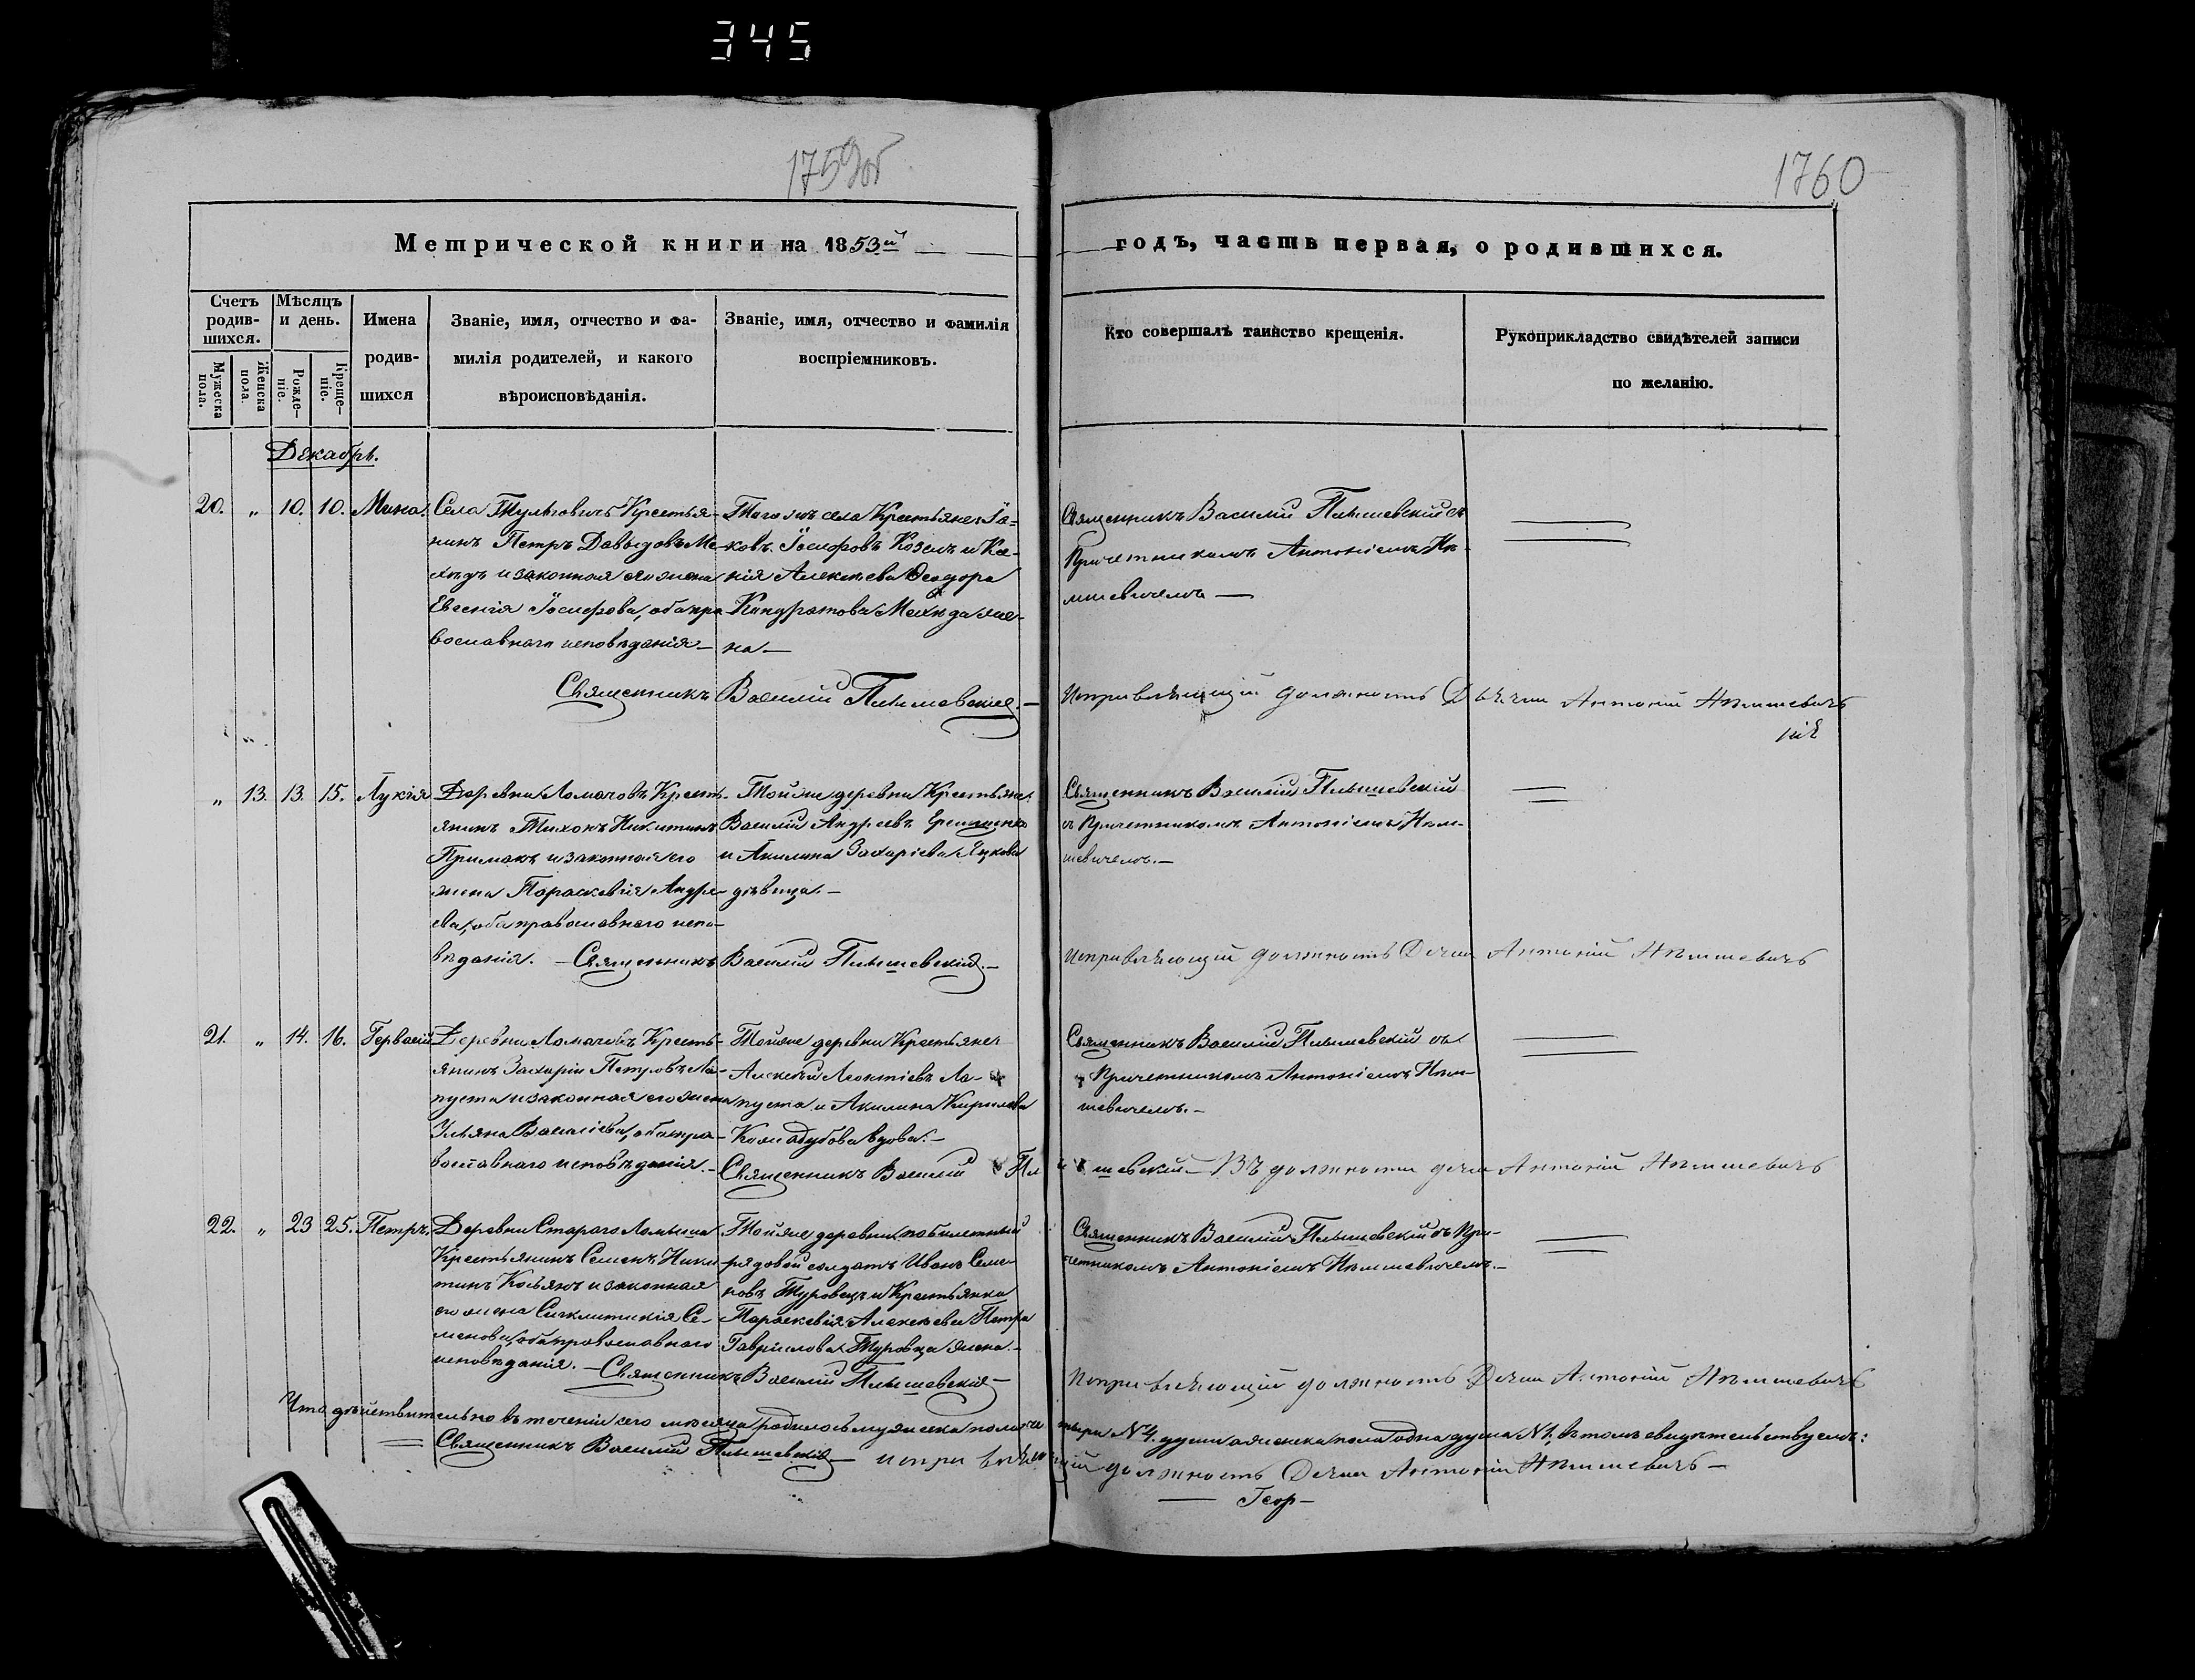 345
1759об
1760
Метрической книги на 1853й
годъ, часть первая, о родившихся.
Счетъ родив-шихся.
Мѣсяцъ и день.
Имена родив-шихся
Званіе, имя, отчество и фа-
милія родителей, и какого
вѣроисповѣданія.
Званіе, имя, отчество и фамилія
воспріемниковъ.
Кто совершалъ таинство крещенія.
Рукоприкладство свидѣтелей записи
по желанію.
Мужеска пола.
Женска пола.
Рожде-ніе.
Креще-ніе.
Декабрь.
20. „ 10. 10. Мина.
Села Тульговичъ Крестья-
нинъ Петръ Давыдовъ Ме-
хедъ и законная его жена
Евгенія Іосифова, оба пра-
вославнаго исповѣданія.–
Того жъ села Крестьяне Іа-
ковъ Іосифовъ Козелъ и Ксе-
нія Алексѣева Ѳеодора
Кондратова Мехеда же-
на.–
Священникъ Василій Пльшевскій съ
Причетникомъ Антоніемъ Нѣ-
мшевичемъ —
Священникъ Василій Пльшевскій.–
Исправляющій должность Дьячка Антоній Нѣмшевичъ
„ 13. 13. 15. Лукія
Деревни Ломачовъ Кресть-
янинъ Тихонъ Никитинъ
Примакъ и законная его
жена Параскевія Андре-
ева, оба православнаго испо-
вѣданія. –Священникъ Василій Пльшевскій.–
Той же деревни Крестьяне
Василій Андреевъ Еремѣенко
и Акилина Захаріева Яцкова
дѣвица.–
Священникъ Василій Пльшевскій
съ Причетникомъ Антоніемъ Нѣм-
шевичемъ.–
Исправляющій должность Дячка Антоній Нѣмшевичъ
21. „ 14. 16. Гервасій
Деревни Ломачовъ Кресть-
янинъ Захарій Петровъ Ла-
пуста и законная его жена
Ульяна Василіева, оба пра-
вославнаго исповѣданія.–
Той же деревни Крестьяне
Алексѣй Леонтіевъ Ла-
пуста и Акилина Кирилова
Колодубова вдова.–
Священникъ Василій Пльшевскій съ
Причетникомъ Антоніемъ Нѣм-
шевичемъ.–
Священникъ Василій Пльшевскій – Въ должности дячка Антоній Нѣмшевичъ
22. „ 23 25. Петръ.
Деревни Стараго Ломыша
Крестьянинъ Семенъ Ники-
тинъ Косьянъ и законная
его жена Синклитикія Се-
менова, оба православнаго
исповѣданія. –Священникъ Василій Пльшевскій–
Той же деревни побилетный
рядовой солдатъ Иванъ Семе-
новъ Туровецъ и Крестьянка
Параскевія Алексѣева Петра
Гаврилова Туровца жена.–
Священникъ Василій Пльшевскій съ При-
четникомъ Антоніемъ Нѣмшевичемъ.–
Исправляющій должность Дячка Антоній Нѣмшевичъ
Что дѣйствительно въ теченіи сего мѣсяца родилось мужеска пола четыри №4. души а женска пола одна душа №1, въ томъ свидѣтельствуемъ:
Священникъ Василій Пльшевскій – исправляющій должность Дячка Антоній Нѣмшевичъ –